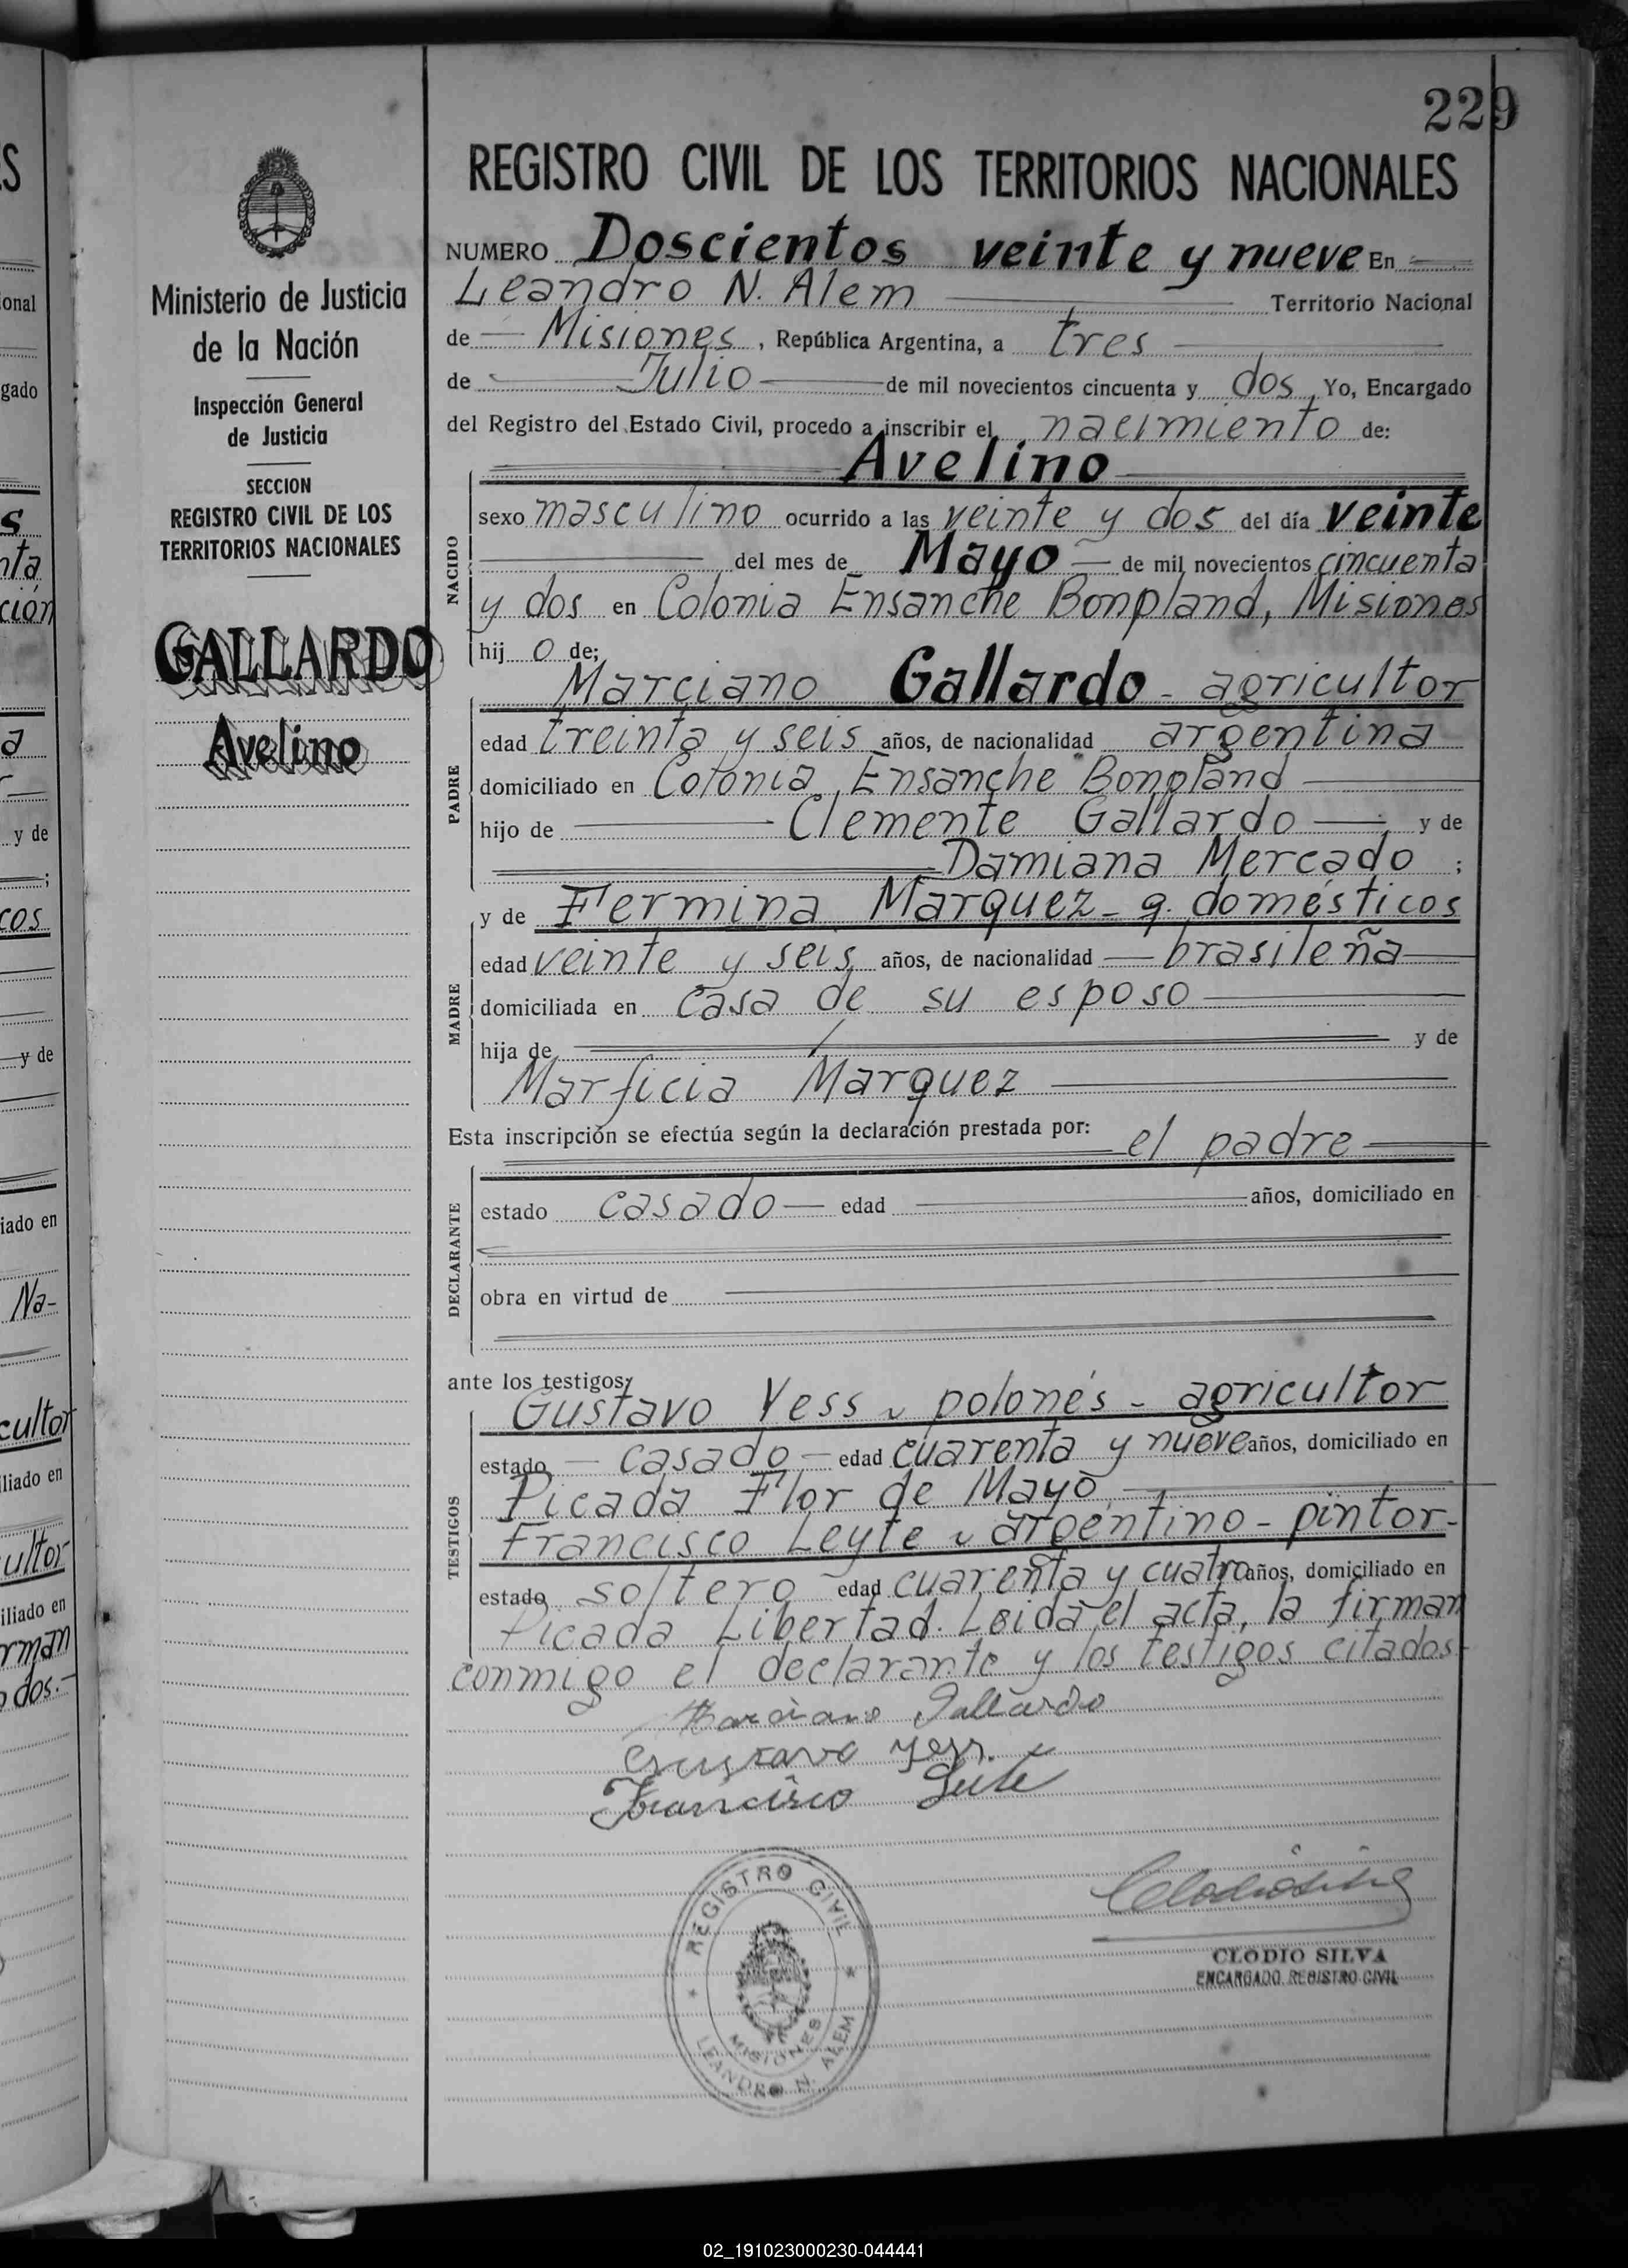 229
REGISTRO CIVIL DE LOS TERRITORIOS NACIONALES
Ministerio de Justicia
de la Nación
Inspección General
de Justicia
SECCION
REGISTRO CIVIL DE LOS
TERRITORIOS NACIONALES
GALLARDO
Avelino
NUMERO Doscientos veinte y nueve En
Leandro N. Alem Territorio Nacional
de Misiones, República Argentina, a tres
de Julio de mil novecientos cincuenta y dos, Yo, Encargado
del Registro del Estado Civil, procedo a inscribir el nacimiento de:
Avelino
NACIDO
sexo masculino ocurrido a las veinte y dos del día veinte
del mes de Mayo de mil novecientos cincuenta
y dos en Colonia Ensanche Bonpland, Misiones
hijo de;
Marciano Gallardo - agricultor
PADRE
edad treinta y seis años, de nacionalidad argentina
domiciliado en Colonia Ensanche Bonpland
hijo de Clemente Gallardo y de
Damiana Mercado ;
y de Fermina Marquez - q. domésticos
MADRE
edad veinte y seis años, de nacionalidad brasileña
domiciliada en casa de su esposo
hija de y de
Marficia Marquez
Esta inscripción se efectúa según la declaración prestada por: el padre
DECLARANTE
estado casado edad años, domiciliado en
obra en virtud de
ante los testigos:
Gustavo Yess - polonés - agricultor
TESTIGOS
estado casado edad cuarenta y nueve años, domiciliado en
Picada Flor de Mayo,
Francisco Leyte - argentino - pintor-
estado soltero edad cuarenta y cuatro años, domiciliado en
Picada Libertad. Leida el acta, la firman
conmigo el declarante y los testigos citados.
Marciano Gallardo
Gustavo Yess.
Francisco Leite
REGISTRO CIVIL
MISIONES
LEANDRO N. ALEM
CLODIO SILVA
ENCARGADO REGISTRO CIVIL
02_191023000230-044441